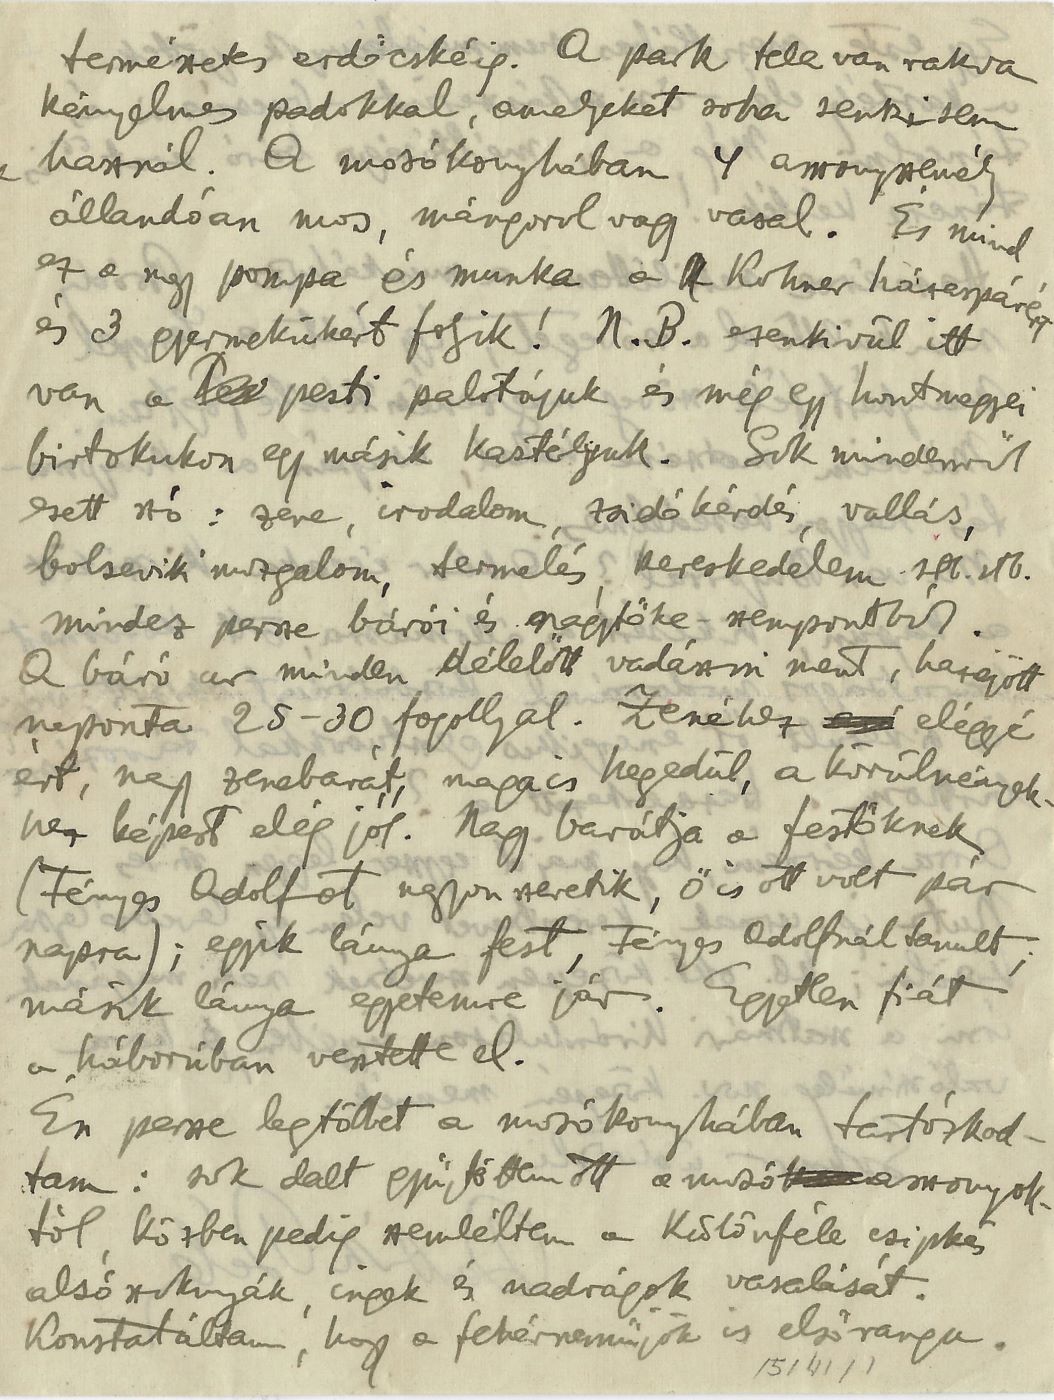 természetes erdőcskéig. A park tele van rakva
kényelmes padokkal, amelyeket soha senki sem
használ. A mosókonyhában 4 asszonyszemély
állandóan mos, mángorol vagy vasal. És mind
ez a nagy pompa és munka a Kohner házaspárért
és 3 gyermekükért folyik! N.B. ezenkivül itt
van a pesti palotájuk és még egy hontmegyei
birtokukon egy másik kastélyuk. Sok mindenről
esett szó: zene, irodalom, zsidókérdés, vallás,
bolsevik mozgalom, termelés, kereskedelem stb. stb.
mindez persze bárói és nagytőke-szempontból.
A báró ur minden délelőtt vadászni ment, hazajött
naponta 25-30 fogollyal. Zenéhez eléggé
ért, nagy zenebarát, maga is hegedül, a körülmények-
hez képest elég jól. Nagy barátja a festőknek
(Fényes Adolfot nagyon szeretik, ő is ott volt pár
napra); egyik lánya fest, Fényes Adolfnál tanult;
másik lánya egyetemre jár. Egyetlen fiát
a háborúban vesztette el.
Én persze legtöbbet a mosókonyhában tartózkod-
tam: sok dalt gyüjtöttem ott a mosóasszonyok-
tól, közben pedig szemléltem a különféle csipkés
alsószoknyák, ingek és nadrágok vasalását.
Konstatáltam, hogy a fehérneműjök is elsőrangu.
15/41/1